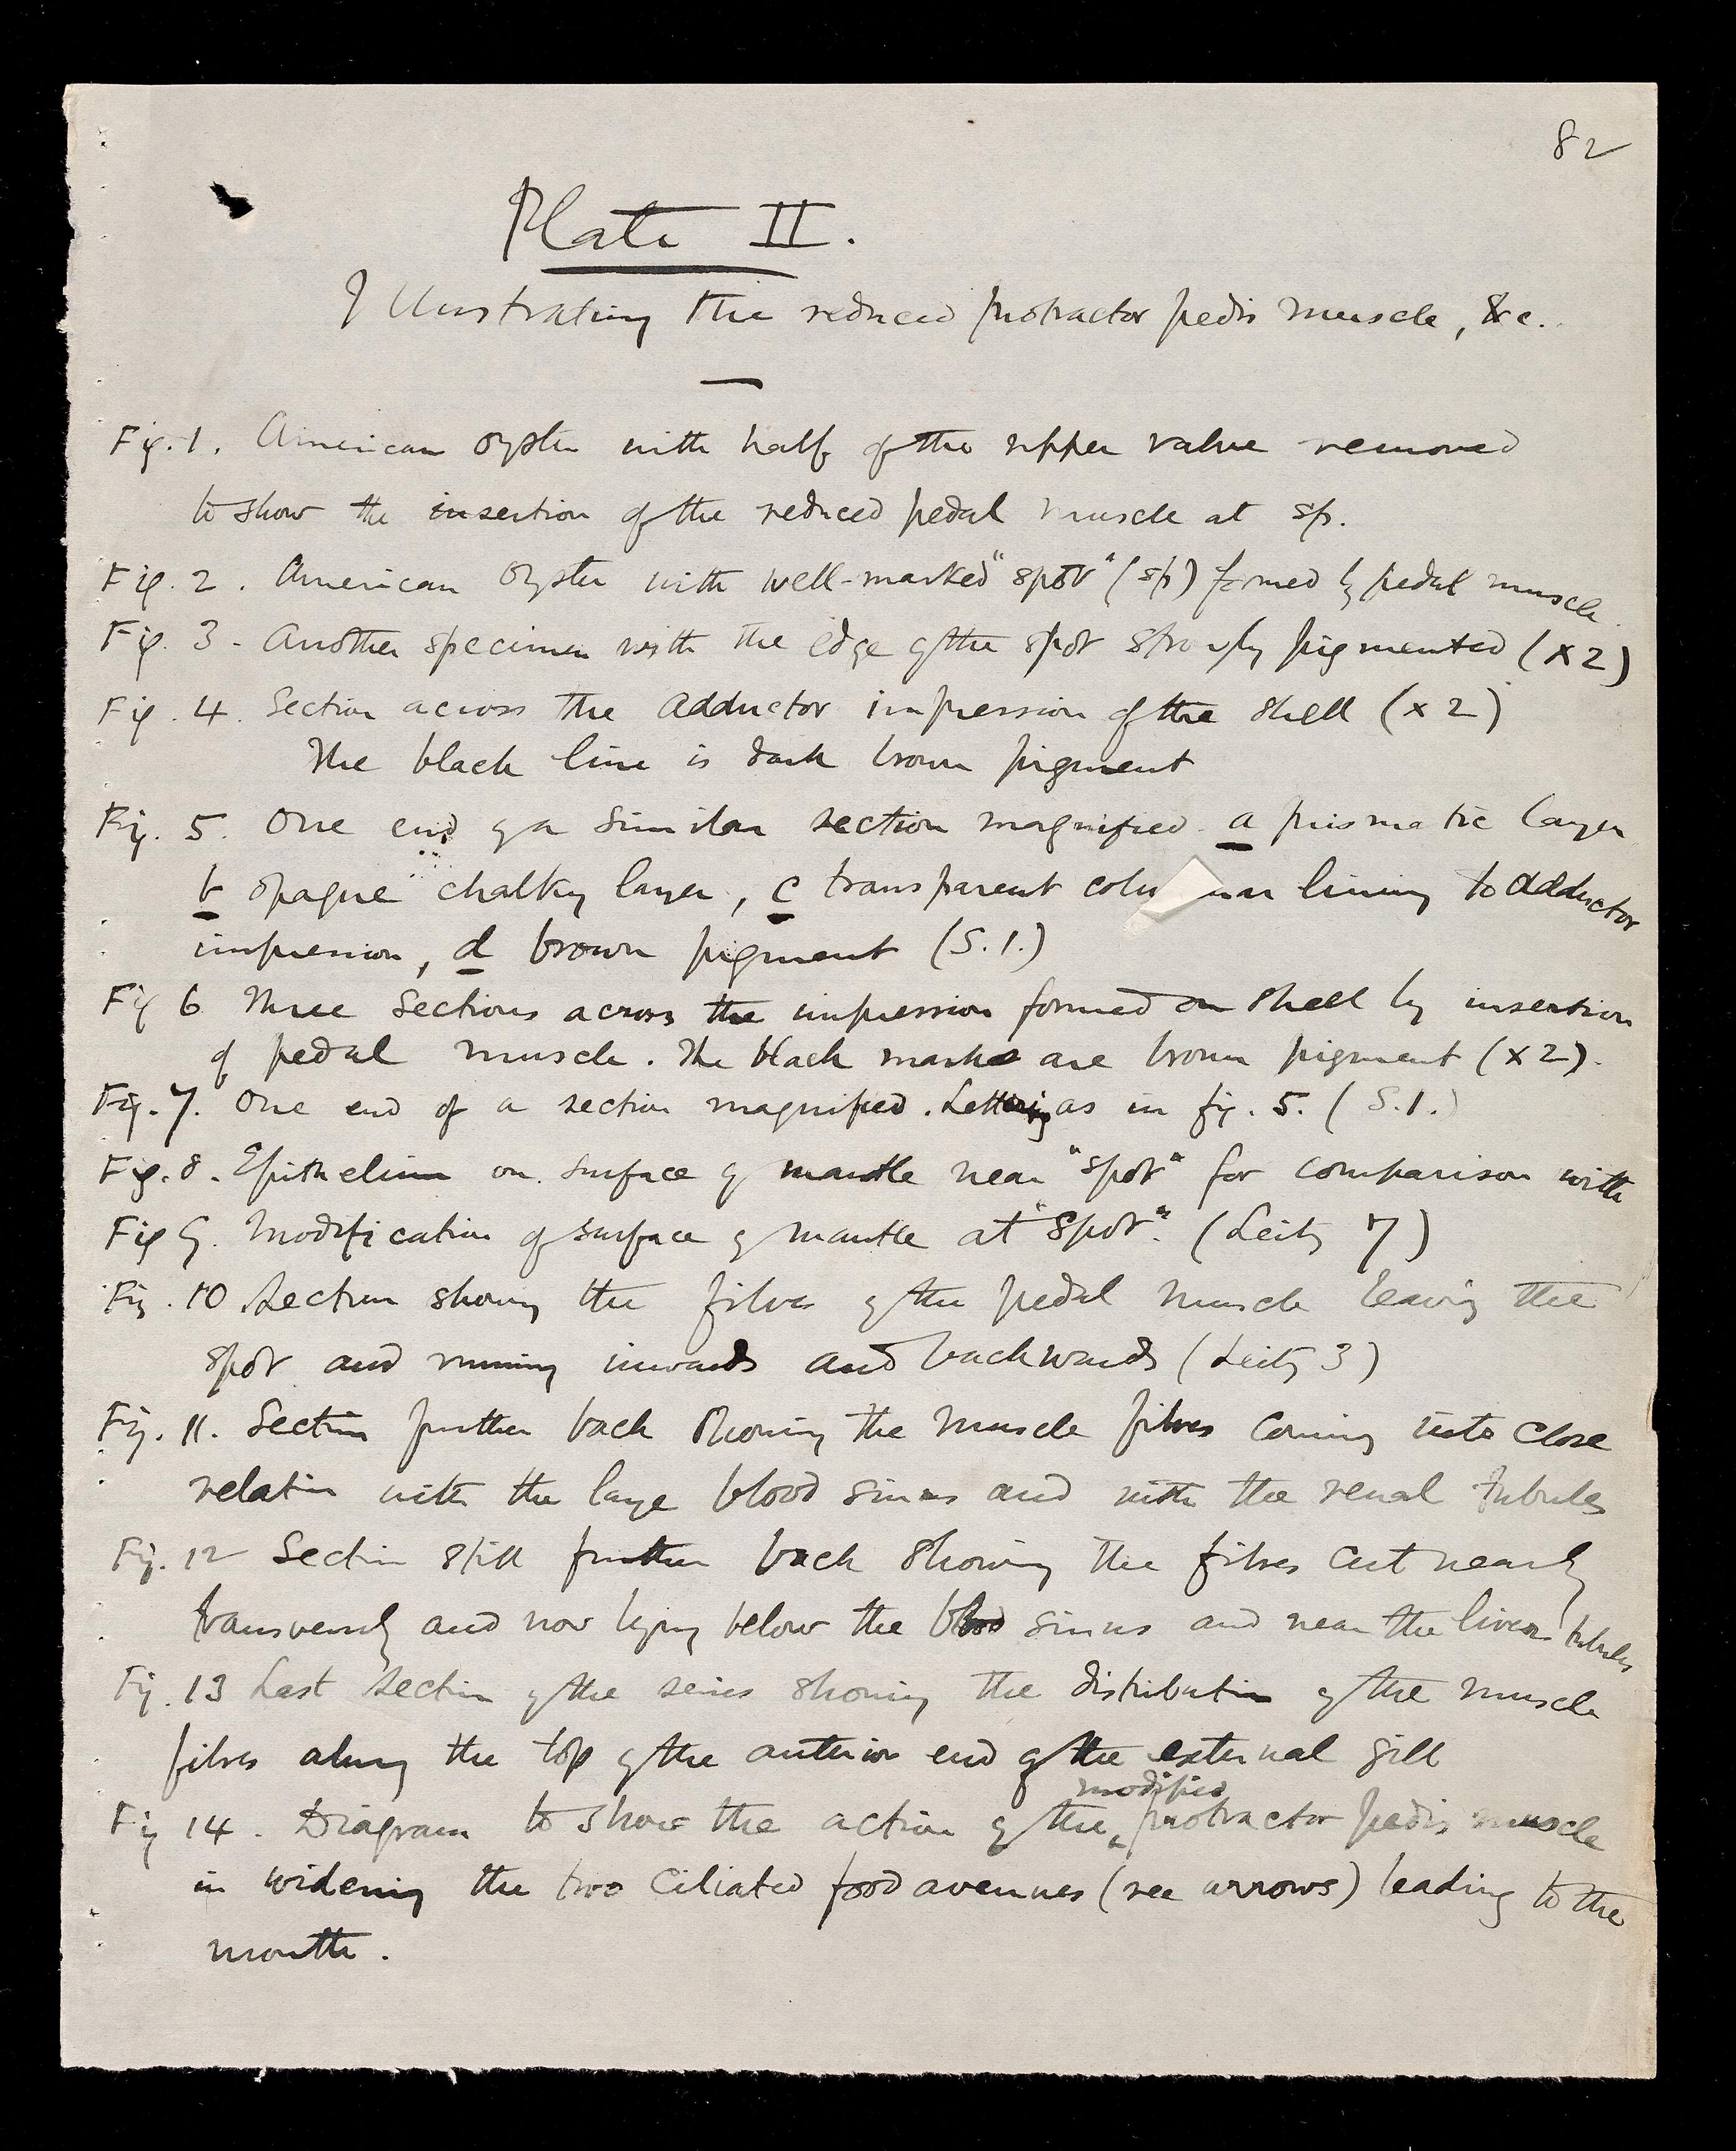 82
Plate II.
Illustrating the reduced protractor pedis muscle, &c.
Fig. 1. American oyster with half of the upper valve removed
to show the insertion of the reduced pedal muscle at sp.
Fig. 2. American oyster with well-marked "spot" (sp) formed by pedal muscle.
Fig. 3 - Another specimen with the edge of the spot strongly pigmented (x2)
Fig. 4. Section across the adductor impression of the shell (x2)
The black line is dark brown pigment
Fig. 5. One end of a similar section magnified. a prismatic layer
b opaque chalky layer, c transparent lining to adductor
impression, d brown pigment (S.1.)
Fig 6 Three sections across the impression formed on shell by insertion
of pedal muscle. The black marks are brown pigment (x2).
Fig. 7. One end of a section magnified. Lettering as in fig. 5. (S.1.)
Fig. 8. Epithelium on surface of mantle near "spot" for comparison with
Fig 9. Modification of surface of mantle at "spot". (Leitz 7)
Fig. 10 Section showing the fibres of the pedal muscle leaving the
spot and running inwards and backwards (Leitz 3)
Fig. 11. Section further back showing the muscle fibres coming into close
relation with the large blood sinus and with the renal tubules
Fig. 12 Section still further back showing the fibres cut nearly
transversely and now lying below the blood sinus and near the liver tubules
Fig. 13 Last section of the series showing the distribution of the muscle
fibres along the top of the anterior end of the external gill
modified
Fig 14. Diagram to show the action of the protractor pedis muscle
in widening the two ciliated food avenues (see arrows) leading to the
mouth.